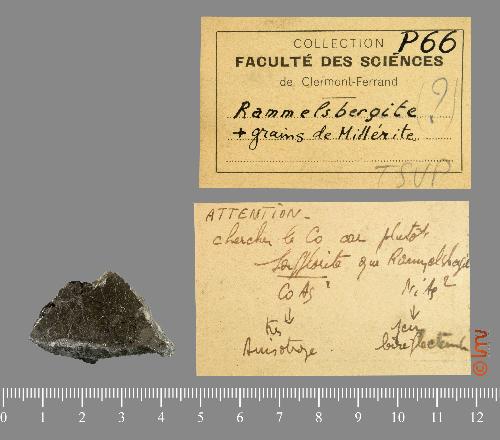 COLLECTION P66
FACULTÉ DES SCIENCES
de Clermont-Ferrand
Rammelsbergite (?)
+ grains de Millérite
TSVP
ATTENTION_
chercher le Co car plutôt
Safflorite que Rammelsbergite
CoAs² NiAs²
↓ ↓
très peu
Anisotrope
0 1 2 3 4 5 6 7 8 9 10 11 12